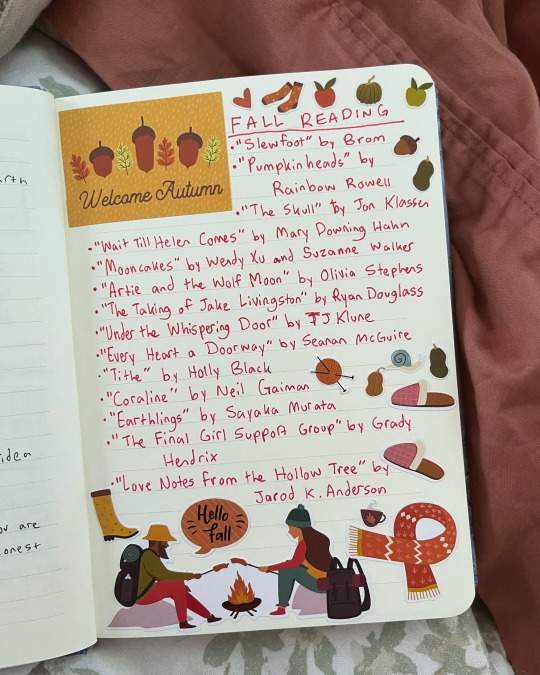 arth
idea
are
onest
Welcome Autumn
FALL READING
• "Slewfoot" by Brom
• "Pumpkinheads" by
Rainbow Rowell
• "The Skull" by Jon Klassen
• "Wait Till Helen Comes" by Mary Downing Hahn
• "Mooncakes" by Wendy Xu and Suzanne Walker
• "Artie and the Wolf Moon" by Olivia Stephens
• "The Taking of Jake Livingston" by Ryan Douglass
• "Under the Whispering Door" by TJ Klune
• "Every Heart a Doorway" by Seanan McGuire
• "Tithe" by Holly Black
• "Coraline" by Neil Gaiman
• "Earthlings" by Sayaka Murata
• "The Final Girl Support Group" by Grady
Hendrix
• "Love Notes from the Hollow Tree" by
Jarod K. Anderson
Hello
fall